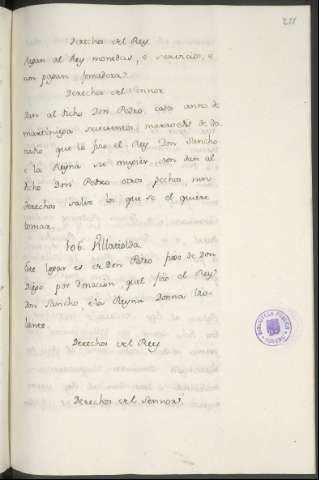 211
Derechos del Rey
Pagan al Rey monedas, e servicios, e
non pagan fonsadera.
Derechos del Sennor
Dan al dicho Don Pedro, cada anno de
martiniega maravedis de
que lo fiço el Rey Don Sancho
e la Reyna su muger, non dan al
dicho Don Pedro otros pechos nin
derechos salvo lo que se el quiere
tomar.
Este logar es de Don Pedro fijo de Don
Diego por donacion, quel fiço el Rey
Don Sancho e la Reyna Donna Vio-
lante.
Derechos del Rey
Derechos del Sennor
BIBLIOTECA PUBLICA